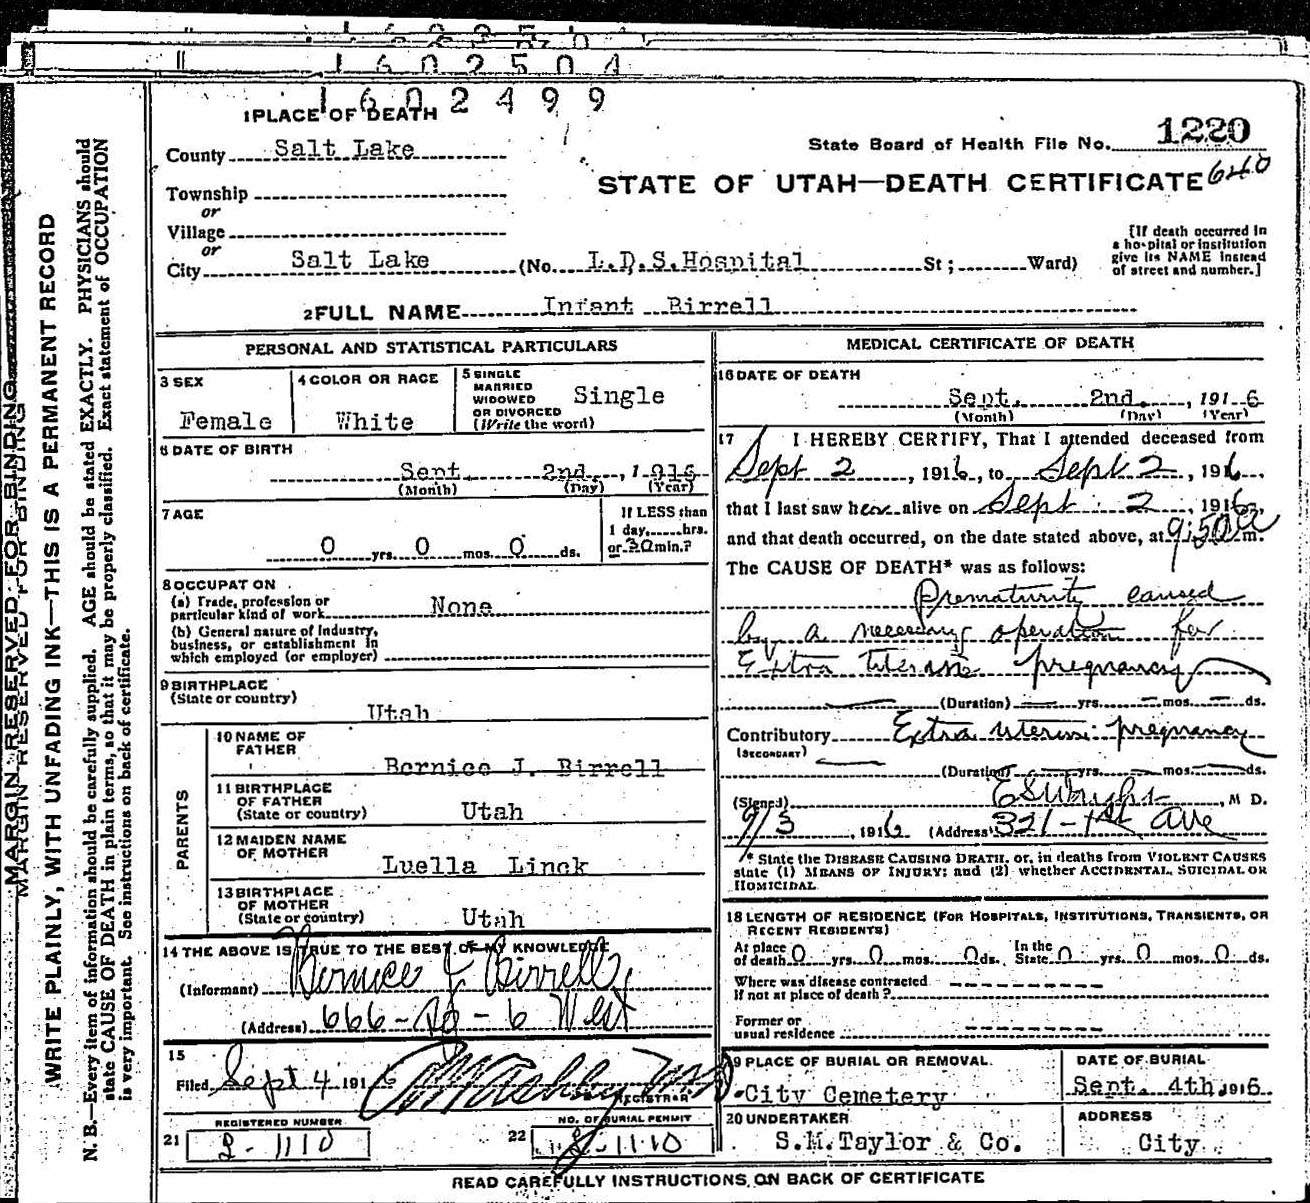 1602504
1602499
1 PLACE OF DEATH
State Board of Health File No. 1220
County Salt Lake
640
STATE OF UTAH—DEATH CERTIFICATE
Township
or
Village
or
City Salt Lake (No. L.D.S.Hospital St; Ward)
[If death occurred in
a hospital or institution
give its NAME instead
of street and number.]
2 FULL NAME Infant Birrell
PERSONAL AND STATISTICAL PARTICULARS
3 SEX
Female
4 COLOR OR RACE
White
5 SINGLE
MARRIED
WIDOWED
OR DIVORCED
(Write the word)
Single
6 DATE OF BIRTH
Sept. 2nd, 1916
(Month) (Day) (Year)
7 AGE
0 yrs. 0 mos. 0 ds.
If LESS than
1 day, hrs.
or 30 min.?
8 OCCUPATION
(a) Trade, profession or
particular kind of work None
(b) General nature of industry,
business, or establishment in
which employed (or employer)
9 BIRTHPLACE
(State or country)
Utah
PARENTS
10 NAME OF
FATHER
Bernice J. Birrell
11 BIRTHPLACE
OF FATHER
(State or country) Utah
12 MAIDEN NAME
OF MOTHER
Luella Linck
13 BIRTHPLACE
OF MOTHER
(State or country) Utah
14 THE ABOVE IS TRUE TO THE BEST OF MY KNOWLEDGE
(Informant) Bernice J Birrell
(Address) 666-So-6 West
15
Filed Sept 4 1916
REGISTRAR
REGISTERED NUMBER
21 2-1110
NO. OF BURIAL PERMIT
22 2-1110
MEDICAL CERTIFICATE OF DEATH
16 DATE OF DEATH
Sept. 2nd, 1916
(Month) (Day) (Year)
17 I HEREBY CERTIFY, That I attended deceased from
Sept 2, 1916, to Sept 2, 1916,
that I last saw her alive on Sept 2, 1916,
and that death occurred, on the date stated above, at 9:50 a m.
The CAUSE OF DEATH* was as follows:
Prematurity caused
by a necessary operation for
Extra uterine pregnancy
(Duration) yrs. mos. ds.
Contributory Extra uterine pregnancy
(SECONDARY)
(Duration) yrs. mos. ds.
(Signed) E S Wright, M D.
9/3, 1916 (Address) 321-1st Ave
* State the DISEASE CAUSING DEATH, or, in deaths from VIOLENT CAUSES
state (1) MEANS OF INJURY; and (2) whether ACCIDENTAL, SUICIDAL OR
HOMICIDAL
18 LENGTH OF RESIDENCE (FOR HOSPITALS, INSTITUTIONS, TRANSIENTS, OR
RECENT RESIDENTS)
At place
of death 0 yrs. 0 mos. 0 ds.
In the
State 0 yrs. 0 mos. 0 ds.
Where was disease contracted
If not at place of death?
Former or
usual residence
19 PLACE OF BURIAL OR REMOVAL
City Cemetery
DATE OF BURIAL
Sept. 4th, 1916
20 UNDERTAKER
S.M.Taylor & Co.
ADDRESS
City
READ CAREFULLY INSTRUCTIONS ON BACK OF CERTIFICATE
MARGIN RESERVED FOR BINDING
MARGIN RESERVED FOR BINDING
WRITE PLAINLY, WITH UNFADING INK—THIS IS A PERMANENT RECORD
N. B.—Every item of information should be carefully supplied. AGE should be stated EXACTLY. PHYSICIANS should
state CAUSE OF DEATH in plain terms, so that it may be properly classified. Exact statement of OCCUPATION
is very important. See instructions on back of certificate.